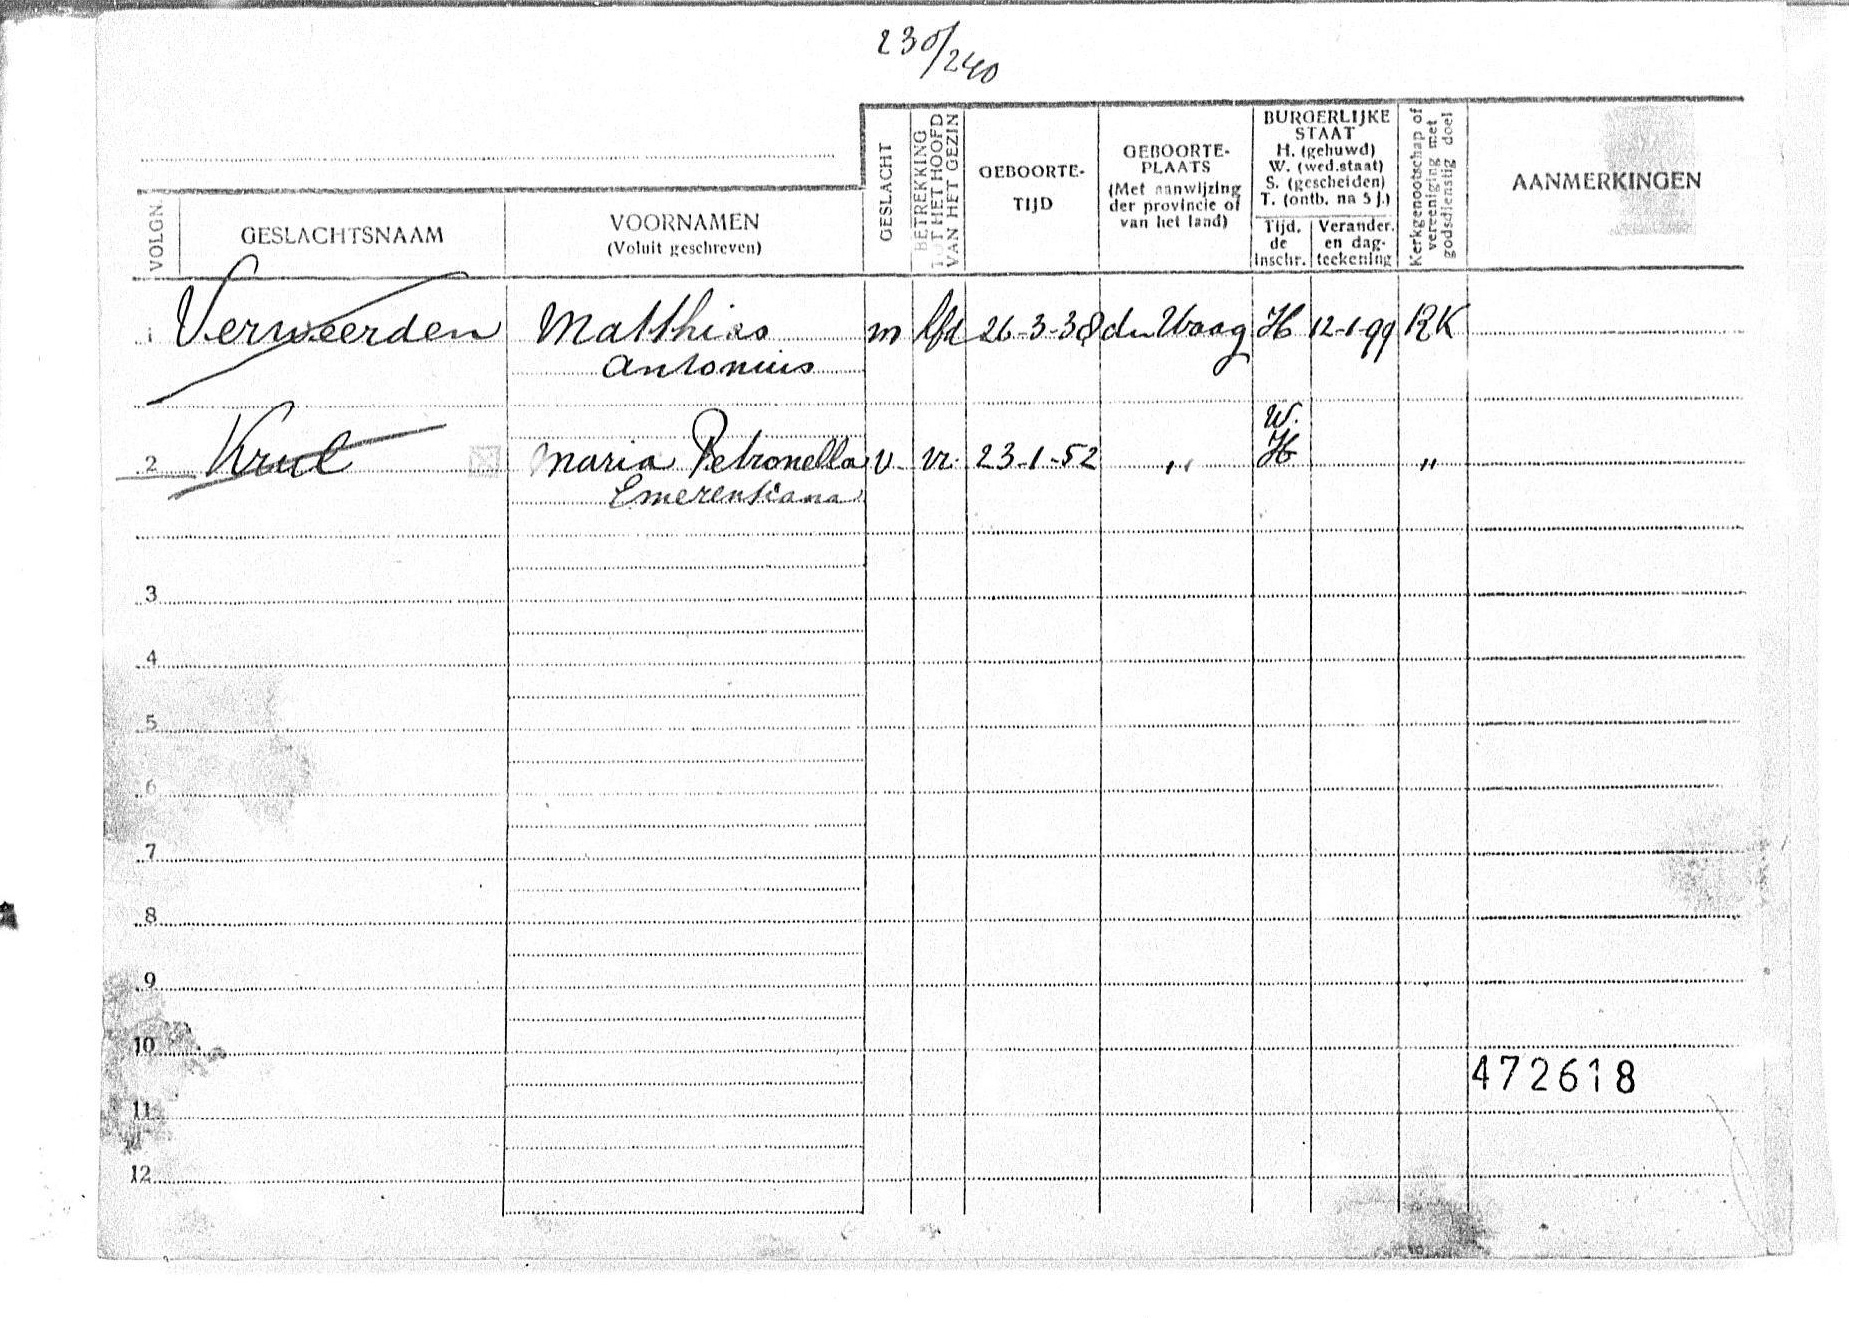 230/240
VOLGN.
GESLACHTSNAAM
VOORNAMEN
(Voluit geschreven)
GESLACHT
BETREKKING
TOT HET HOOFD
VAN HET GEZIN
GEBOORTE-
TIJD
GEBOORTE-
PLAATS
(Met aanwijzing
der provincie of
van het land)
BURGERLIJKE
STAAT
H. (gehuwd)
W. (wed.staat)
S. (gescheiden)
T. (ontb. na 5 j.)
Tijd.
de
inschr.
Verander.
en dag-
teekening
Kerkgenootschap of
vereeniging met
godsdienstig doel
AANMERKINGEN
1 Verweerden Matthias m hfd 26-3-38 den Haag H 12-1-99 RK
Antonius
W.
2 Krul Maria Petronella v vr. 23-1-52 " H "
Emerentiana
3
4
5
6
7
8
9
10
472618
11
12